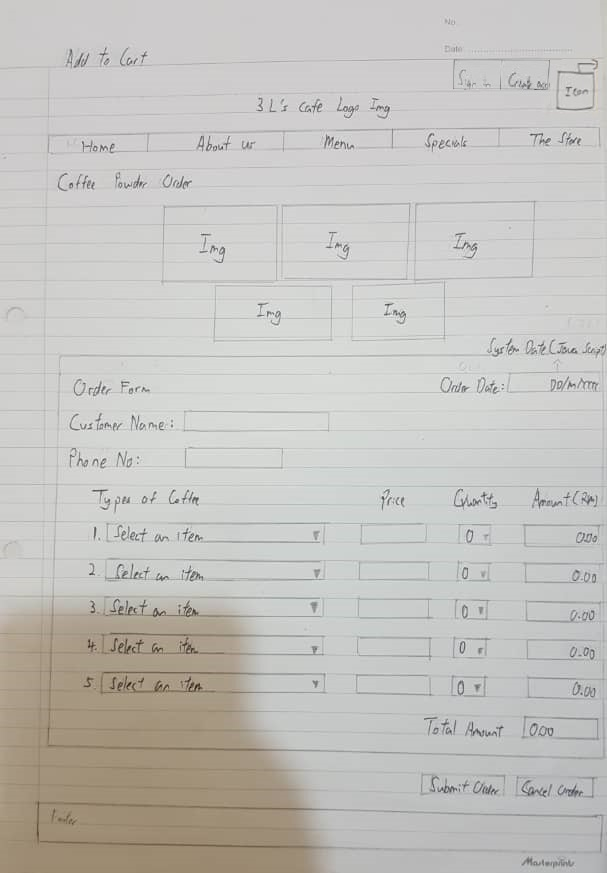 No.
Date
Add to Cart
Sign in Create acc
Icon
3 L's Cafe Logo Img
Home About us Menu Specials The Store
Coffee Powder Order
Img Img Img
Img Img
System Date (Java Script)
Order Form Order Date: DD/M/YYYY
Customer Name:
Phone No:
Types of Coffee Price Quantity Amount (RM)
1. Select an item 0 0.00
2. Select an item 0 0.00
3. Select an item 0 0.00
4. Select an item 0 0.00
5. Select an item 0 0.00
Total Amount 0.00
Submit Order Cancel Order
Footer
Masterprint